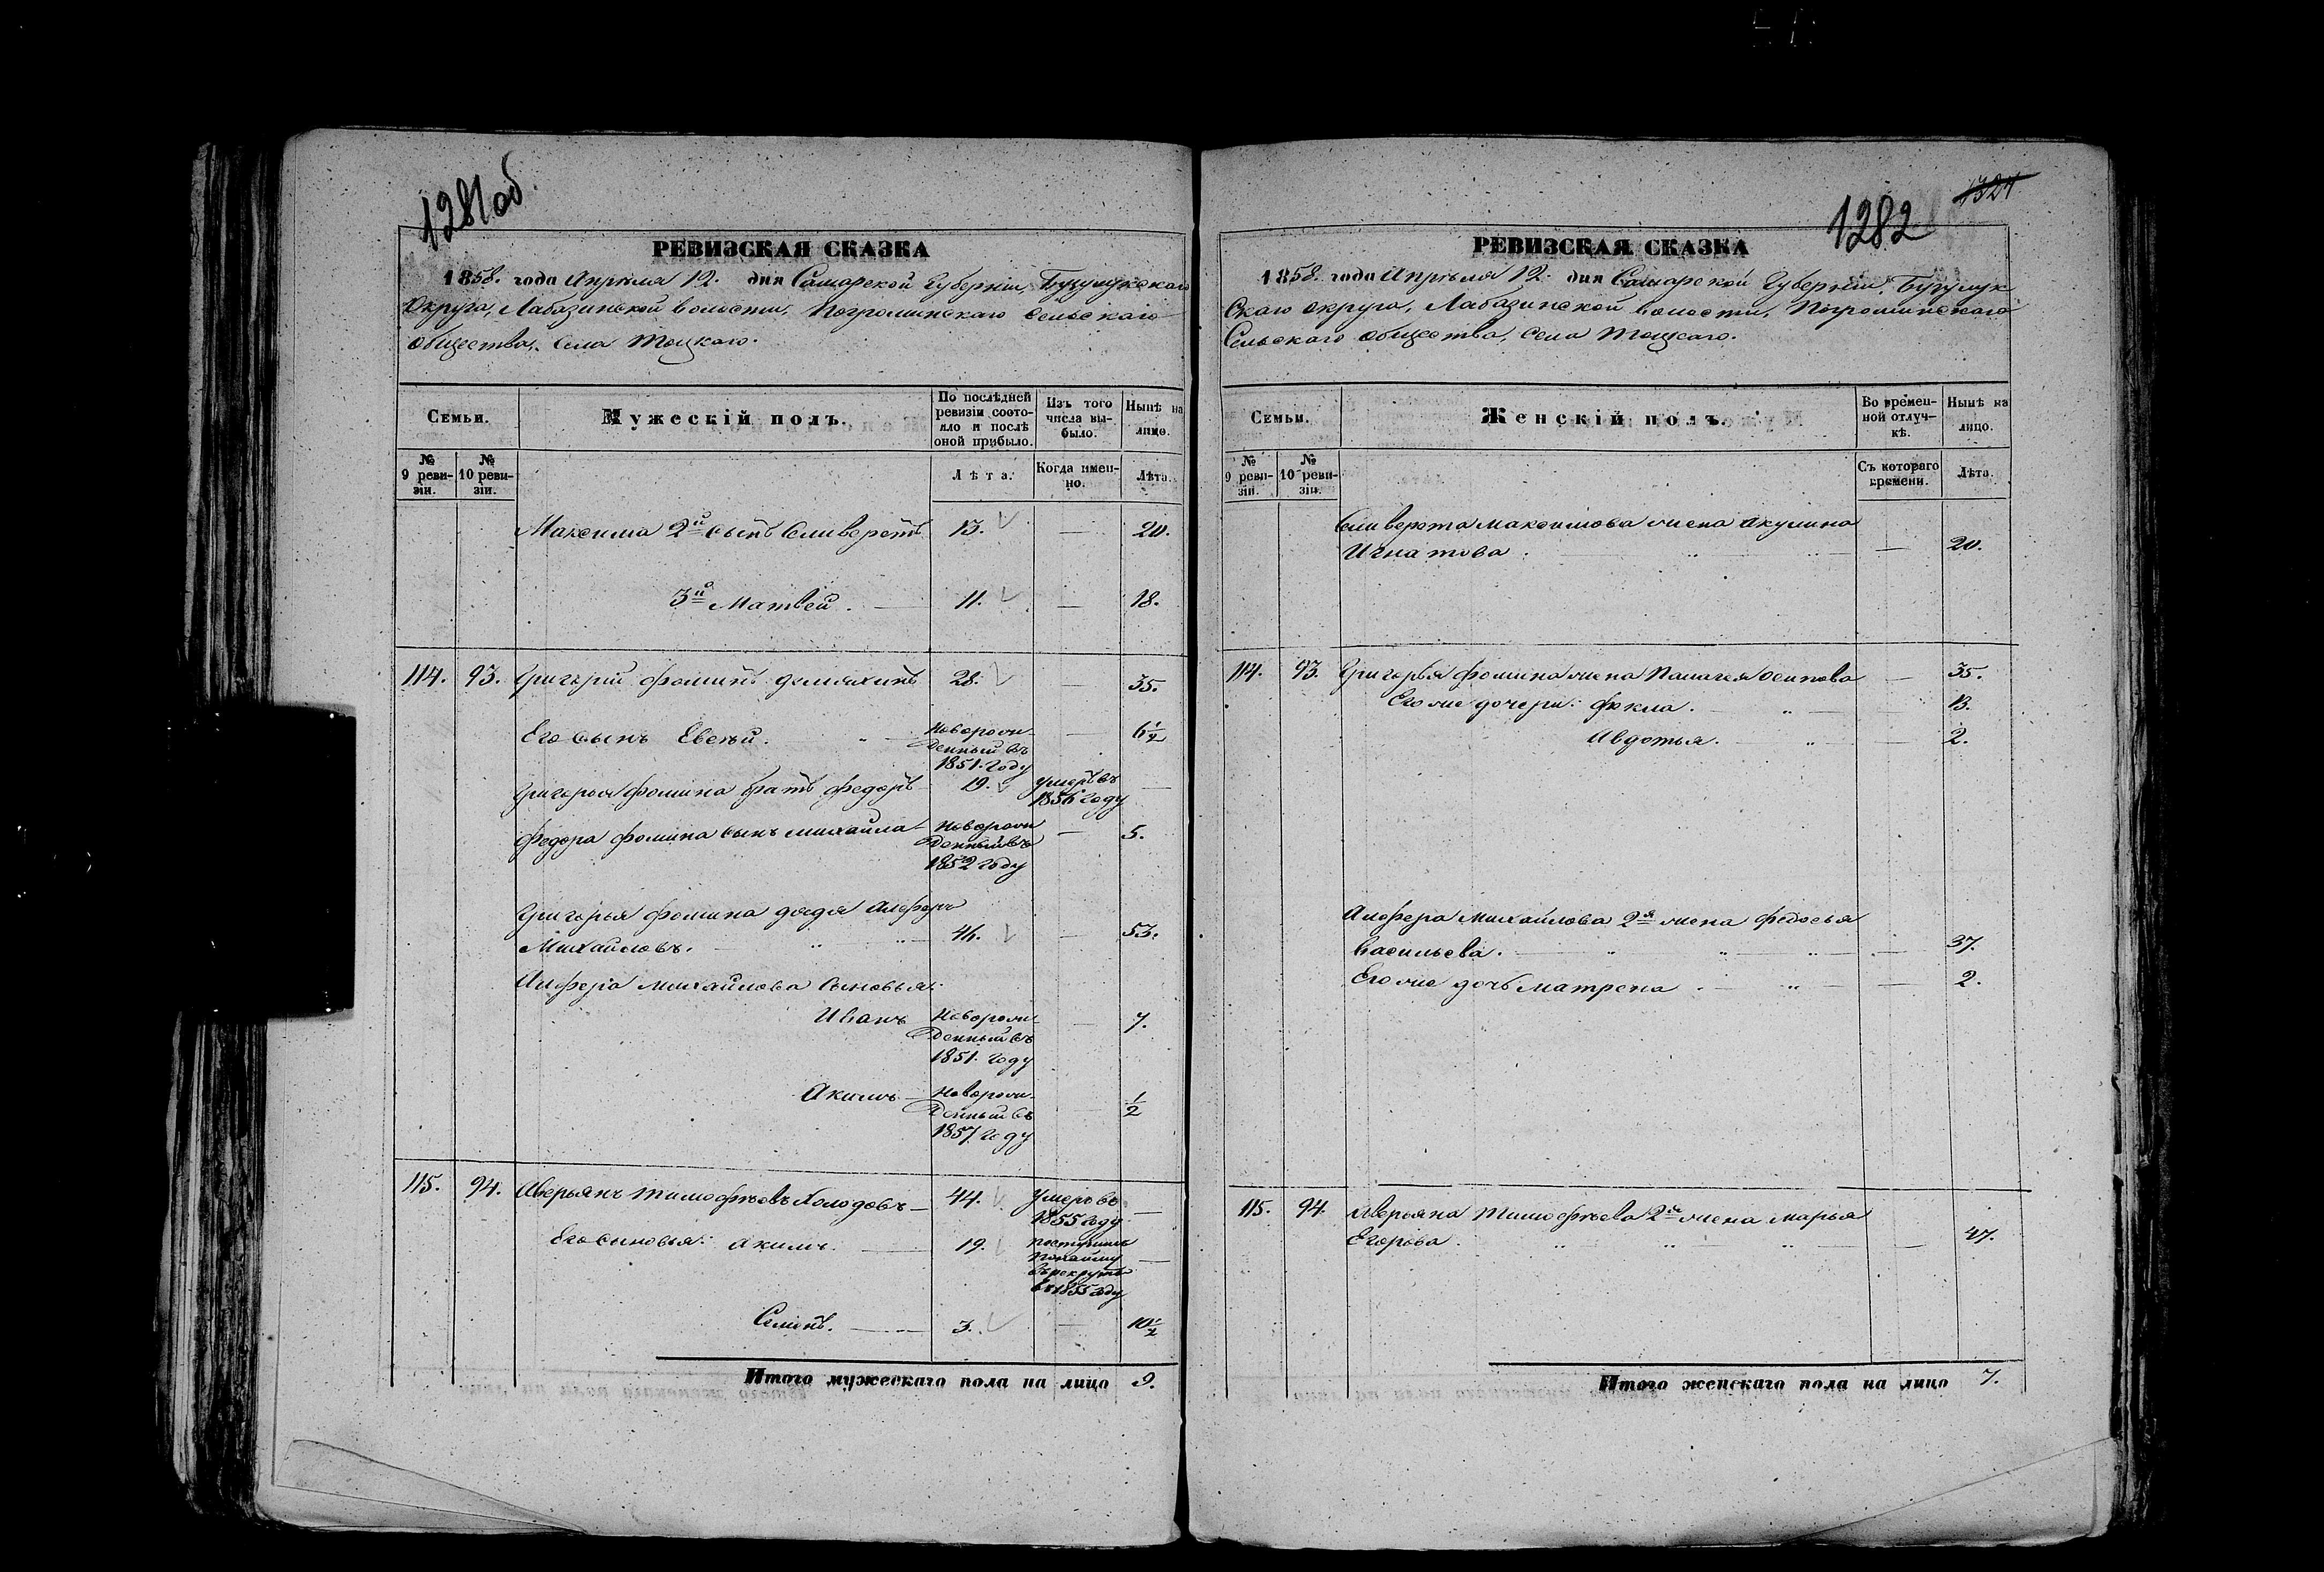 1281об.
РЕВИЗСКАЯ СКАЗКА
1858. года Апрѣля 12. дня Самарской Губерніи, Бузулукскаго
Округа, Лабазинской волости, Погроминскаго Сельскаго
Общества, Села Тоцкаго.
Семьи.
Мужескій полъ.
По послѣдней ревизіи состояло и послѣ оной прибыло.
Изъ того числа выбыло.
Нынѣ на лицо.
№ 9 ревизіи.
№ 10 ревизіи.
Лѣта.
Когда именно.
Лѣта.
Максима 2й сынъ Селиверстъ 13. — 20.
3й Матвей. — 11. — 18.
114. 93. Григорій Фоминъ 28. — 35.
Его сынъ Евсѣй. Новорожденный въ 1851. Году — 6½
Григорья Фомина братъ Федоръ 19. Умеръ въ 1856 Году —
Федора Фомина сынъ Михайла Новорожденный въ 1852 Году — 5.
Григорья Фомина дядя Алферъ
Михайловъ. 46. — 53.
Алфера Михайлова Сыновья:
Иванъ Новорожденный въ 1851. Году — 7.
Акимъ Новорожденный въ 1857 Году — ½
115. 94. Аверьянъ Тимофѣевъ Холодовъ — 44. Умеръ въ 1855 Году —
Его Сыновья: Акимъ. — 19. поступилъ въ рекруты въ 1855 Году —
Семенъ. — 3. — 10½
Итого мужескаго пола на лицо 9.
1324
1282
РЕВИЗСКАЯ СКАЗКА
1858. года Апрѣля 12. дня Самарской Губерніи, Бузулук
скаго Округа, Лабазинской волости, Погроминскаго
Сельскаго Общества, Села Тоцкаго.
Семьи.
Женскій полъ.
Во временной отлучкѣ.
Нынѣ на лицо.
№ 9 ревизіи.
№ 10 ревизіи.
Съ котораго времени.
Лѣта.
Селиверста Максимова жена Акулина
Игнатова. — 20.
114. 93. Григорья Фомина жена Палагея Осипова — 35.
Его же дочери: Фекла. 13.
Авдотья. — 2.
Алфера Михайлова 2я жена Федосья
Васильева. — 37.
Его же дочь Матрена. — 2.
115. 94. Аверьяна Тимофѣева 2я жена Марья
Егорова. — 47.
Итого женскаго пола на лицо 7.